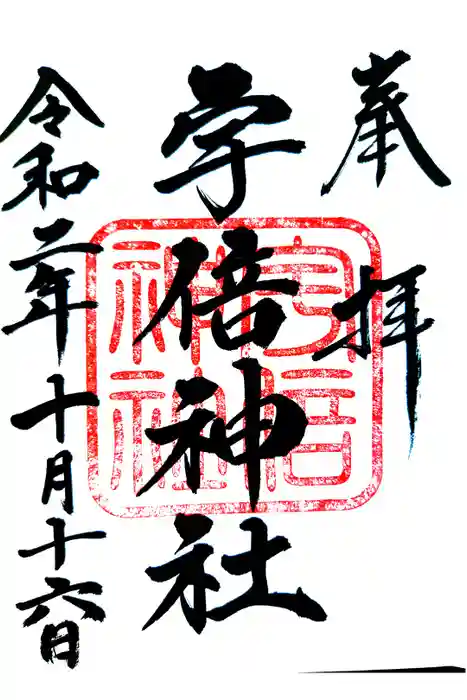 奉拝
宇倍神社
令和二年十月十六日
宇倍
神社